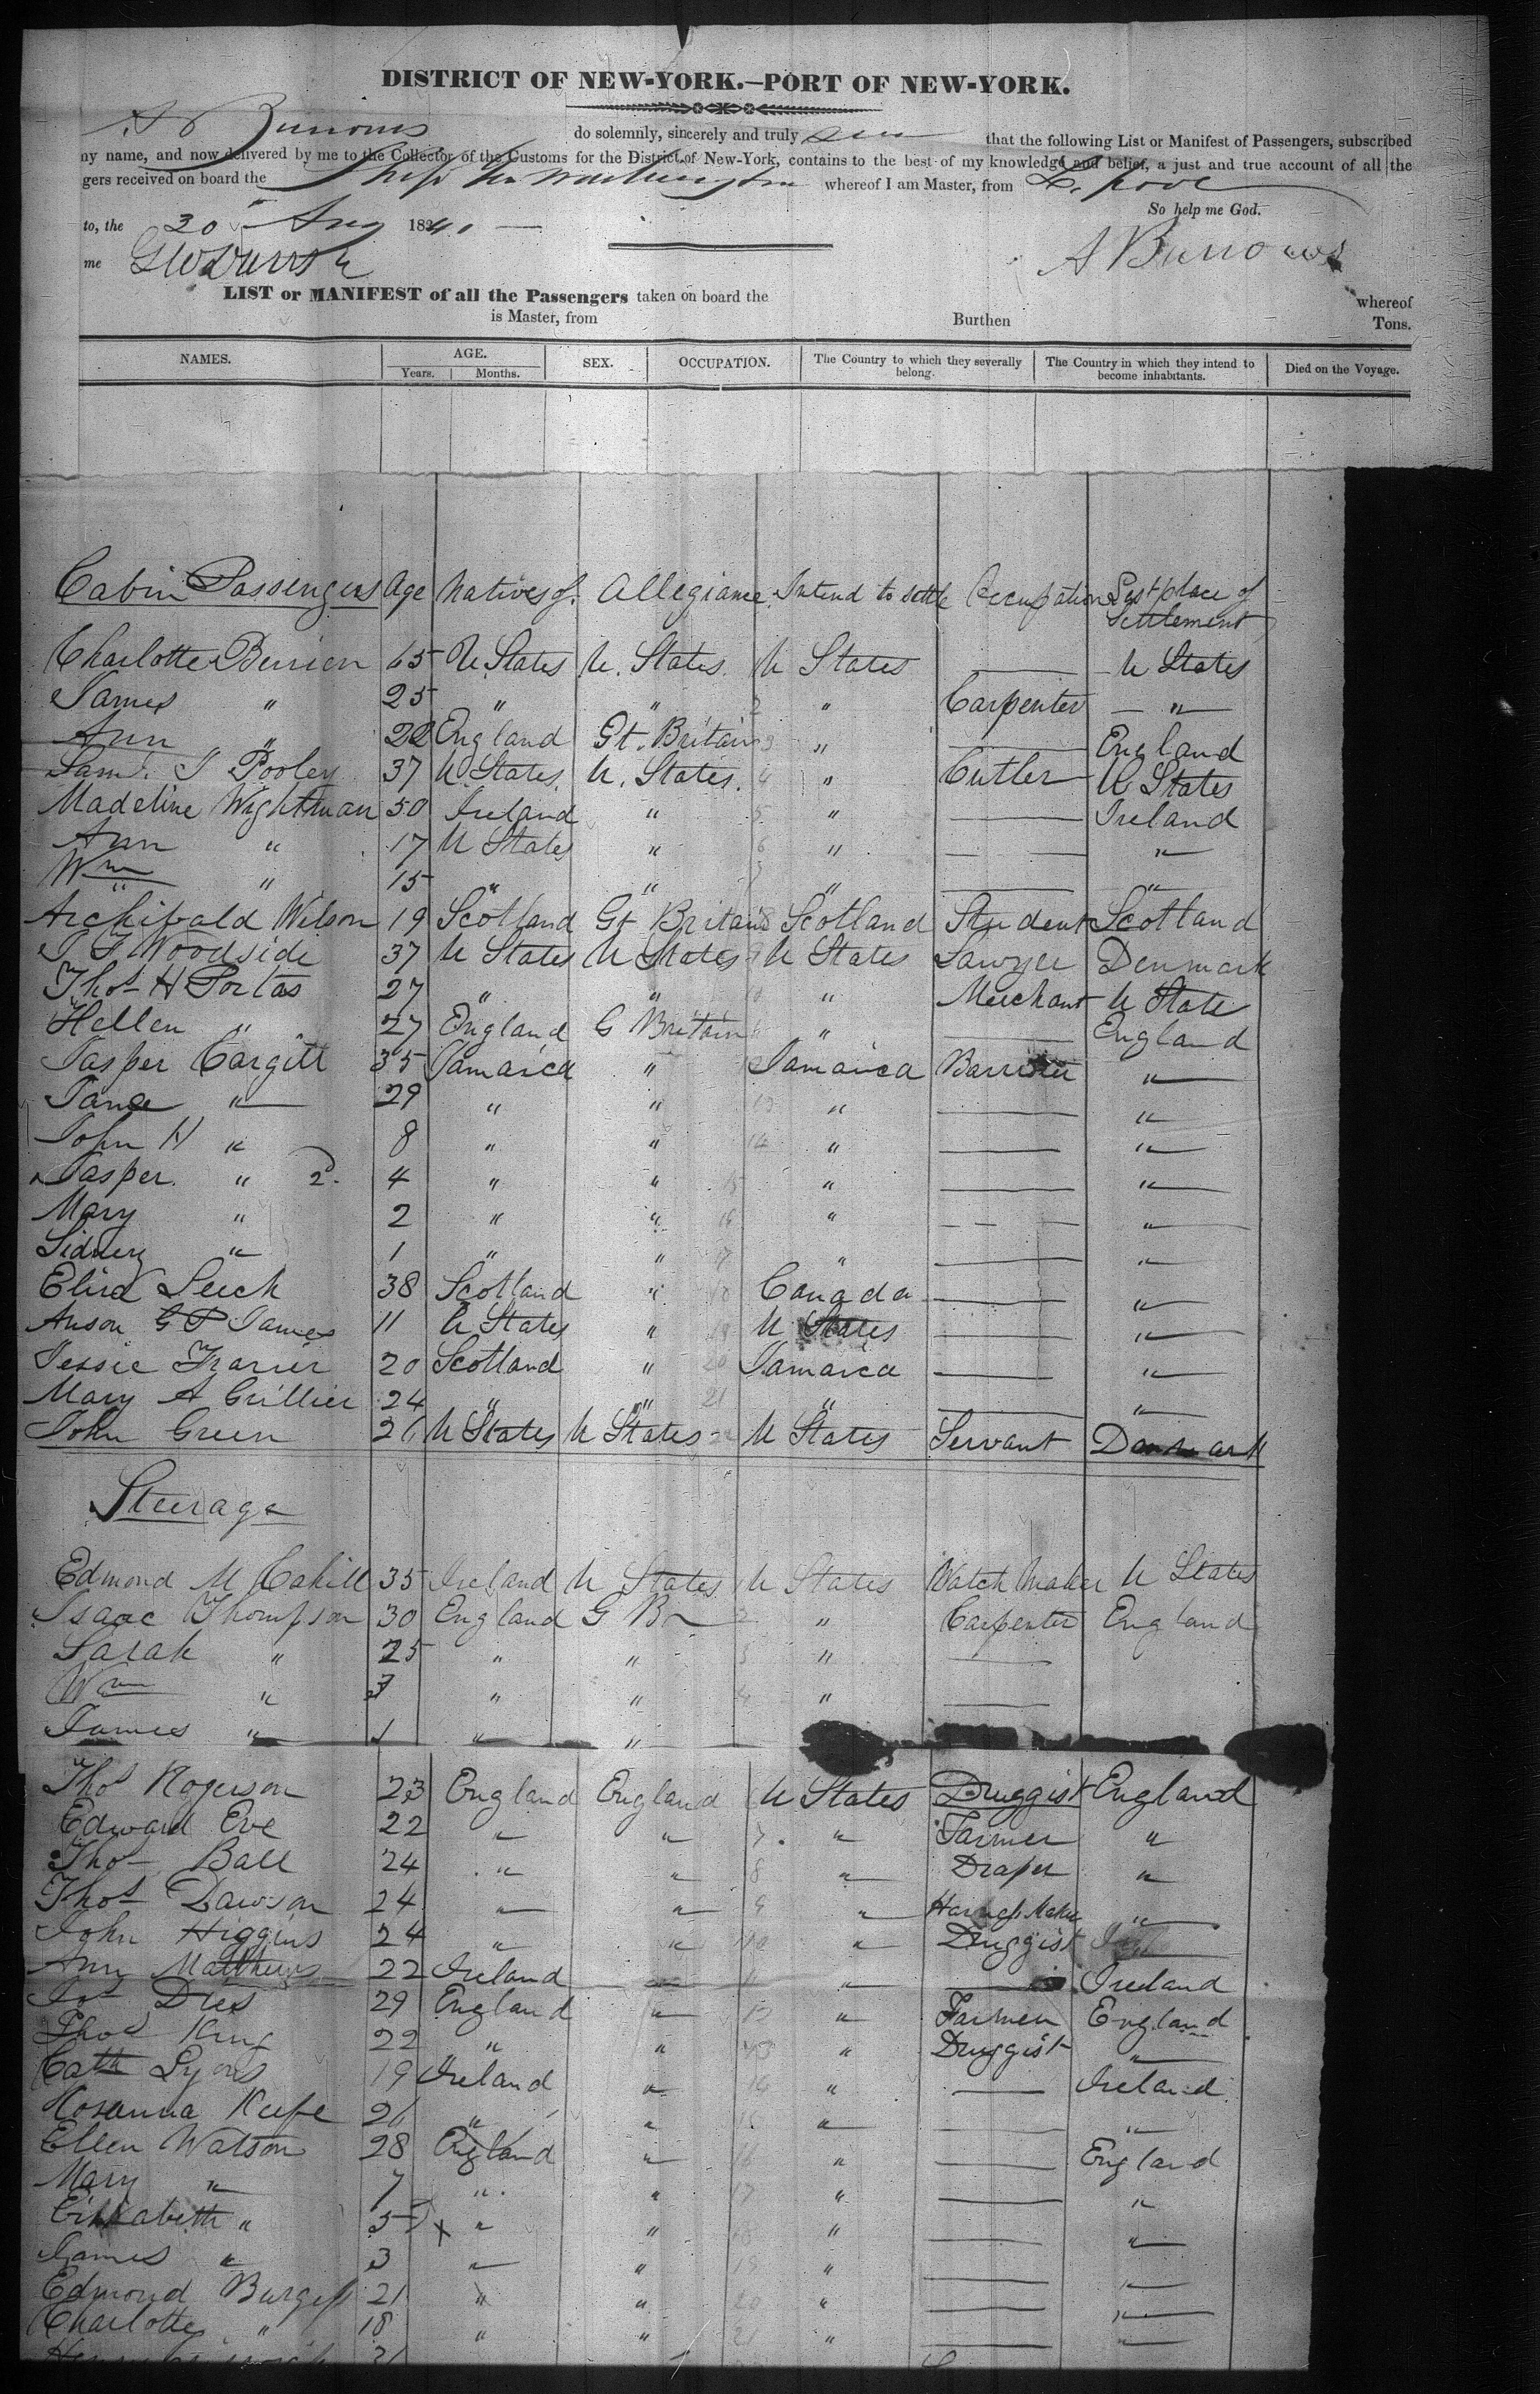 DISTRICT OF NEW-YORK.—PORT OF NEW-YORK.
Burrows do solemnly, sincerely and truly that the following List or Manifest of Passengers, subscribed
ny name, and now delivered by me to the Collector of the Customs for the District of New-York, contains to the best of my knowledge and belief, a just and true account of all the
gers received on board the Ship Washington whereof I am Master, from L. pool
So help me God.
to, the 20 Aug 1840
me A Burrows
LIST or MANIFEST of all the Passengers taken on board the whereof
is Master, from Burthen Tons.
NAMES. AGE. SEX. OCCUPATION. The Country to which they severally belong. The Country in which they intend to become inhabitants. Died on the Voyage.
Years. Months.
Cabin Passengers Age Natives of. Allegiance Intend to settle Occupation Last place of Settlement
Charlotte Berrien 65 U. States U. States. U States — U States
James " 25 " " 2 " Carpenter — " —
Ann " 22 England Gt. Britain 3 " — England
Saml. J Pooley 37 U. States. U. States. 4 " Cutler U States
Madeline Wightman 50 Ireland " 5 " — Ireland
Ann " 17 U States " 6 " — "
Wm " 15 " " 7 " — "
Archibald Wilson 19 Scotland Gt Britain 8 Scotland Student Scotland
J S Woodside 37 U States U States 9 U States Lawyer Denmark
Thos H Portas 27 " " 10 " Merchant U State
Hellen " 27 England G Britain " — England
Jasper Cargill 35 Jamaica " Jamaica Barrister "
Jane " 29 " " 13 " — "
John H " 8 " " 14 " — "
Jasper. " 2. 4 " " 15 " — "
Mary " 2 " " 16 " — "
Sidney " 1 " " 17 " — "
Eliza Leech 38 Scotland " 18 Canada — "
Anson G P James 11 U States " 19 U States — "
Jessie Frazier 20 Scotland " 20 Jamaica — "
Mary A Crillier 24 " " 21 " — "
John Green 26 U States U States 22 U States Servant Denmark
Steerage
Edmond M Cahill 35 Ireland U States 1 U States Watch Maker U States
Isaac Thompson 30 England G Br 2 " Carpenter England
Sarah " 25 " " 3 " —
Wm " 3 " " 4 " —
James " 1 " "
Thos Rogerson 23 England England U States Druggist England
Edward Eve 22 " " 7 " Farmer "
Thos Ball 24 " " 8 " Draper "
Thos Dawson 24 " " 9 " Harness Maker "
John Higgins 24 " " 10 " Druggist
Ann Matthews 22 Ireland " 11 " — Ireland
Jos Dies 29 England " 12 " Farmer England
Thos King 22 " " 13 " Druggist "
Cath Lyons 19 Ireland " 14 " — Ireland
Rosanna Keefe 26 " " 15 " — "
Ellen Watson 28 England " 16 " — England
Mary " 7 " " 17 " — "
Elizabeth " 5 x " " 18 " — "
James " 3 " " 19 " — "
Edmond Burgess 21 " " 20 " — "
Charlotte " 18 " " 21 " — "